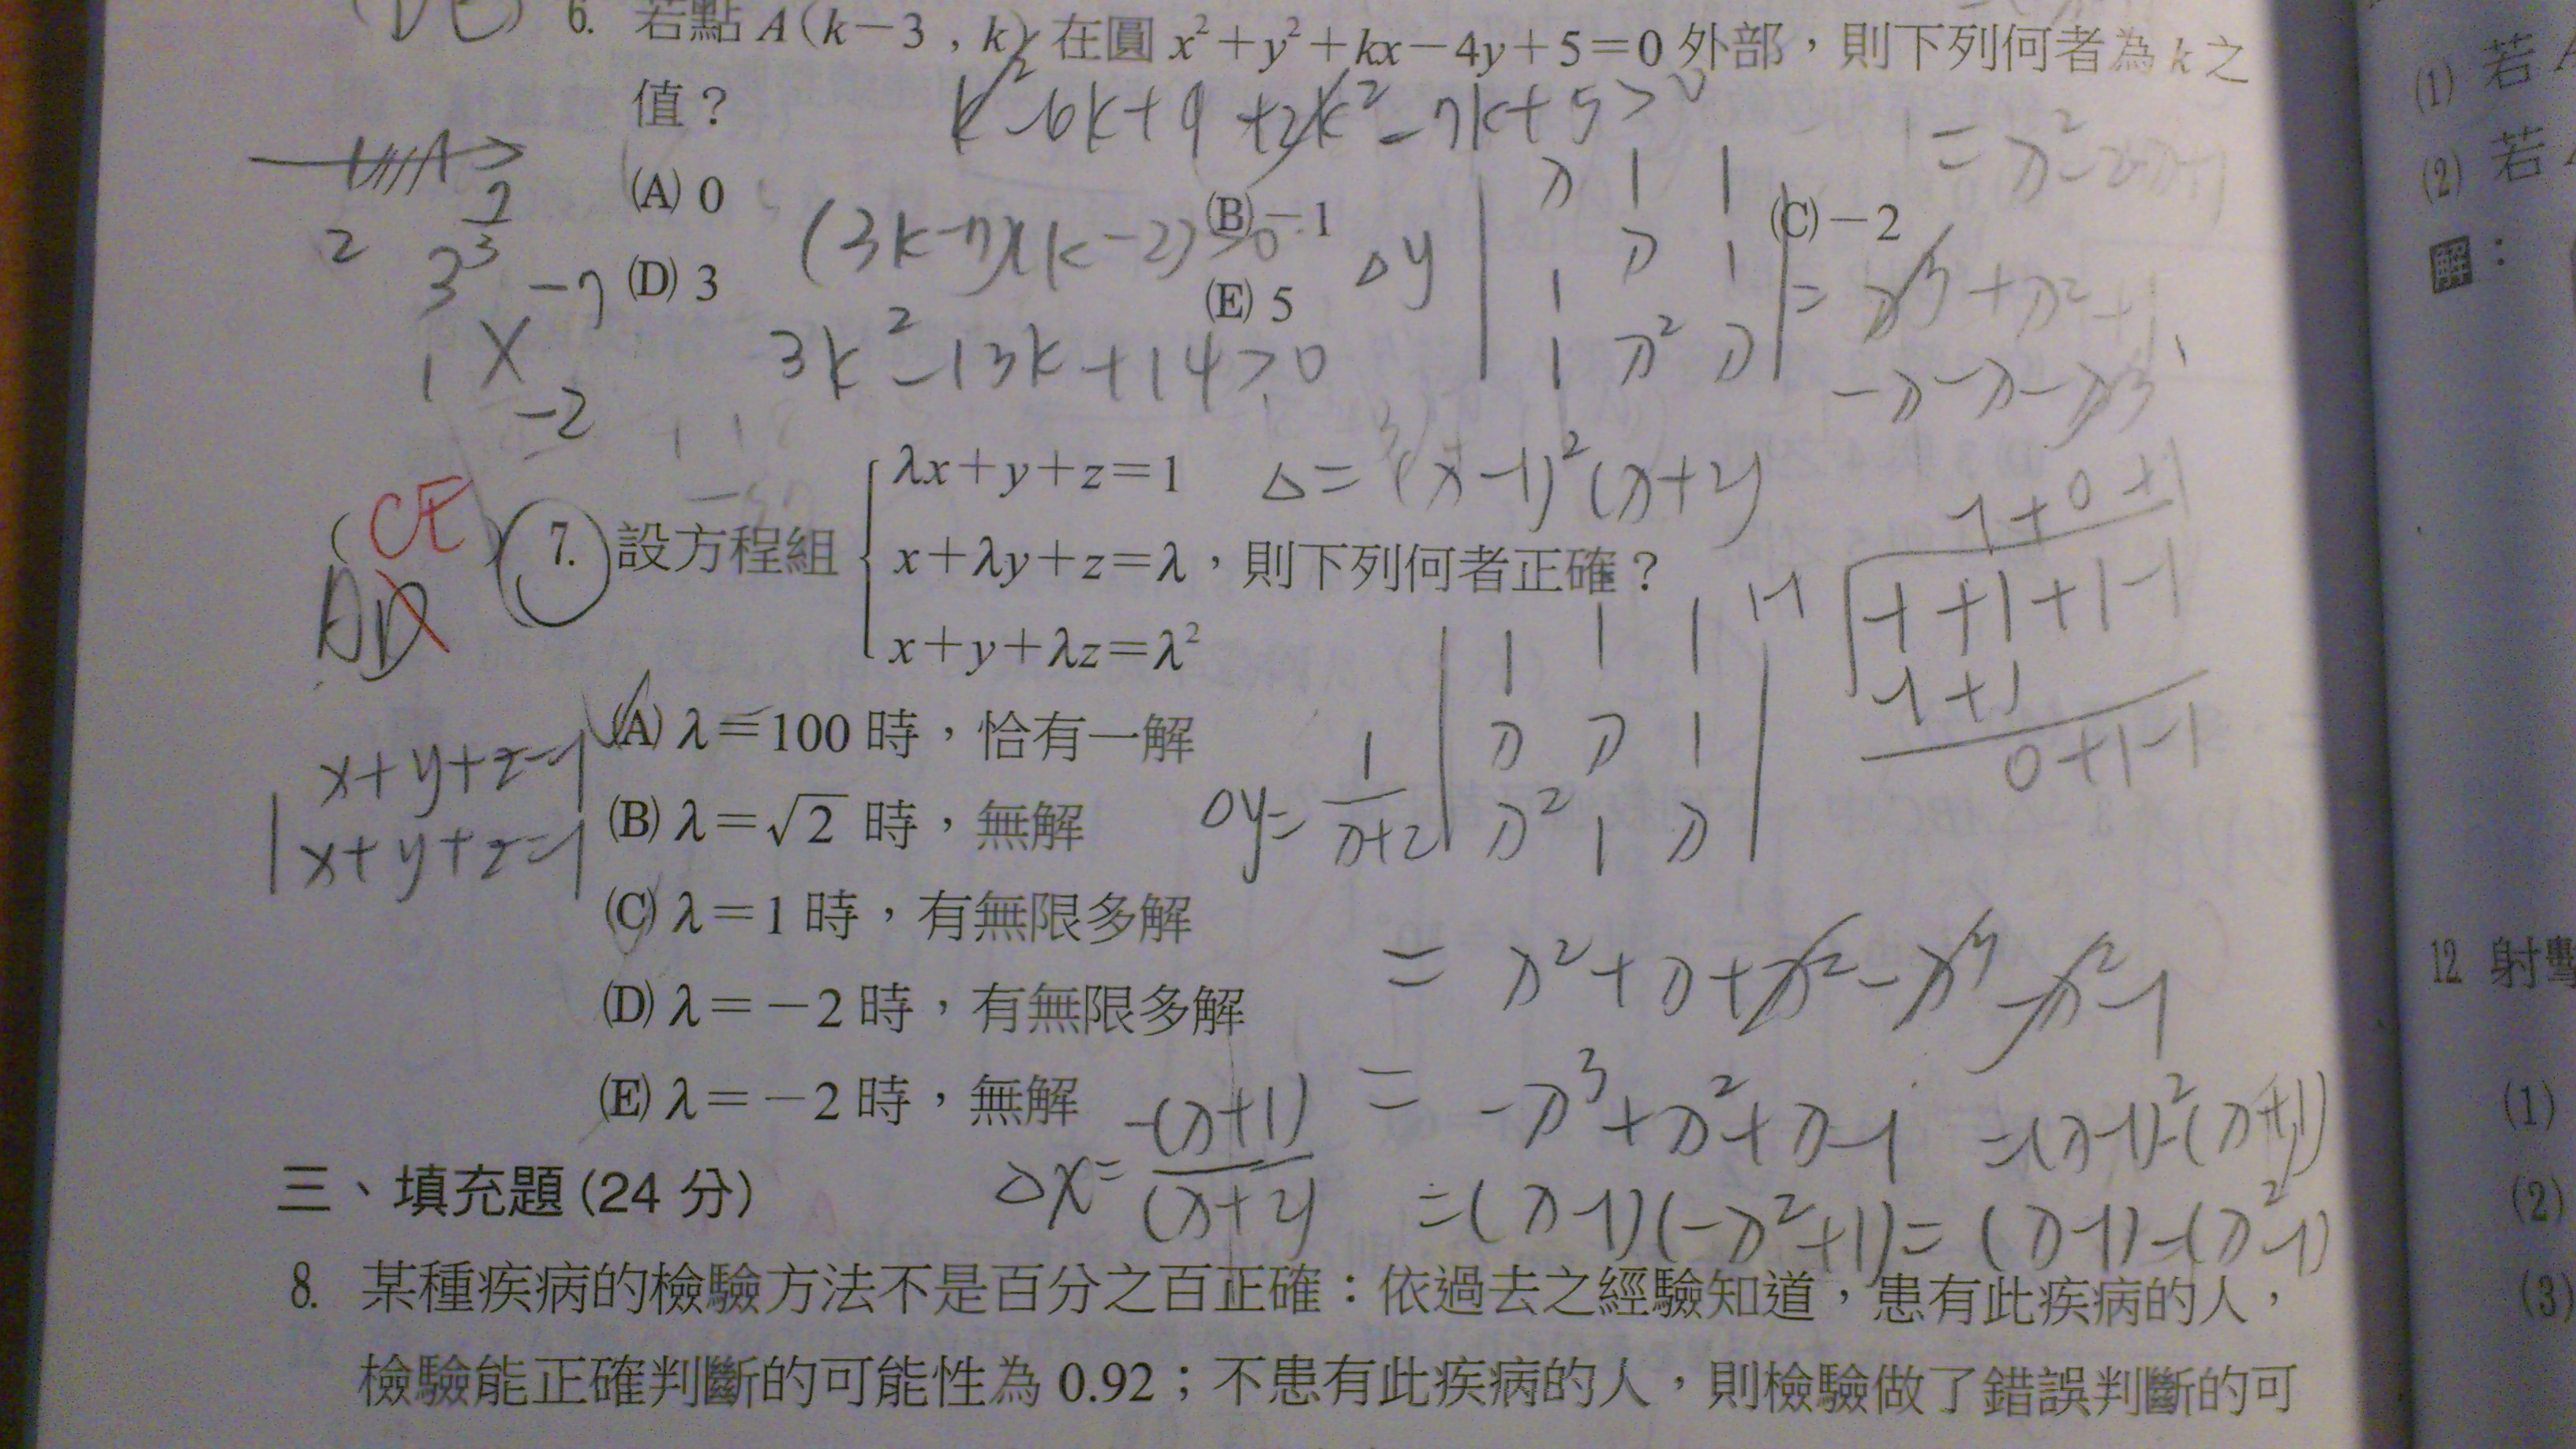 6. 若點 A(k-3,k) 在圓 x²+y²+kx-4y+5=0 外部，則下列何者為 k 之
值？
k²-6k+9+2k²-7k+5>0
(A) 0
(B) -1
(C) -2
(3k-7)(k-2)>0
(D) 3
(E) 5
3k²-13k+14>0
(CE) 7. 設方程組 { λx+y+z=1
x+λy+z=λ，則下列何者正確？
x+y+λz=λ²
Δ=(λ-1)²(λ+2)
(A) λ=100 時，恰有一解
(B) λ=√2 時，無解
(C) λ=1 時，有無限多解
(D) λ=-2 時，有無限多解
(E) λ=-2 時，無解
x+y+z=1
x+y+z=1
=-λ³+λ²+λ-1
=(λ-1)(-λ²+1)=(λ-1)-(λ²-1)
三、填充題(24 分)
8. 某種疾病的檢驗方法不是百分之百正確：依過去之經驗知道，患有此疾病的人，
檢驗能正確判斷的可能性為 0.92；不患有此疾病的人，則檢驗做了錯誤判斷的可
(1) 若
(2) 若
解：
12 射擊
(1)
(2)
(3)